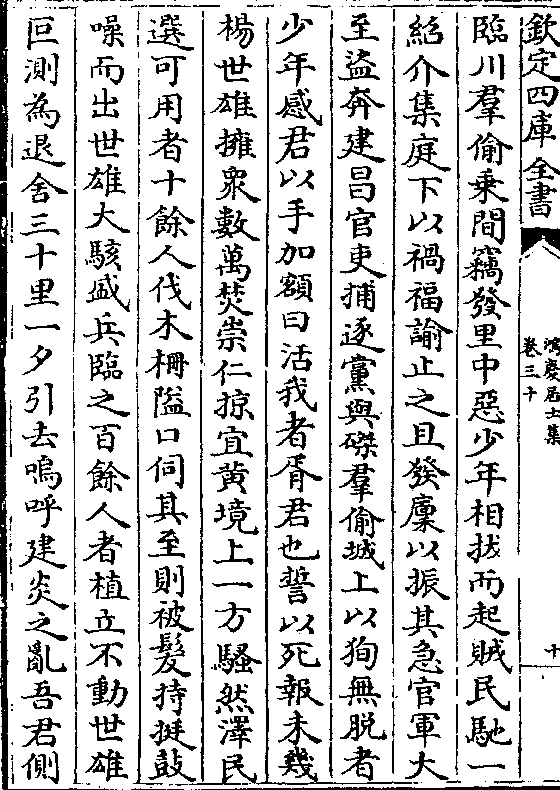 欽定四庫全書
鴻慶居士集
卷三十
十
臨川羣偷乗間竊發里中惡少年相㧞而起賊民馳一
紹介集庭下以禍福諭止之且發廩以振其急官軍大
至盜奔建昌官吏捕逐黨與磔羣偷城上以狥無脱者
少年感君以手加額曰活我者胥君也誓以死報未幾
楊世雄擁衆數萬焚崇仁掠宜黄境上一方騷然澤民
選可用者十餘人伐木栅隘口伺其至則被髮持挺鼓
噪而出世雄大駭盛兵臨之百餘人者植立不動世雄
叵測為退舍三十里一夕引去嗚呼建炎之亂吾君側